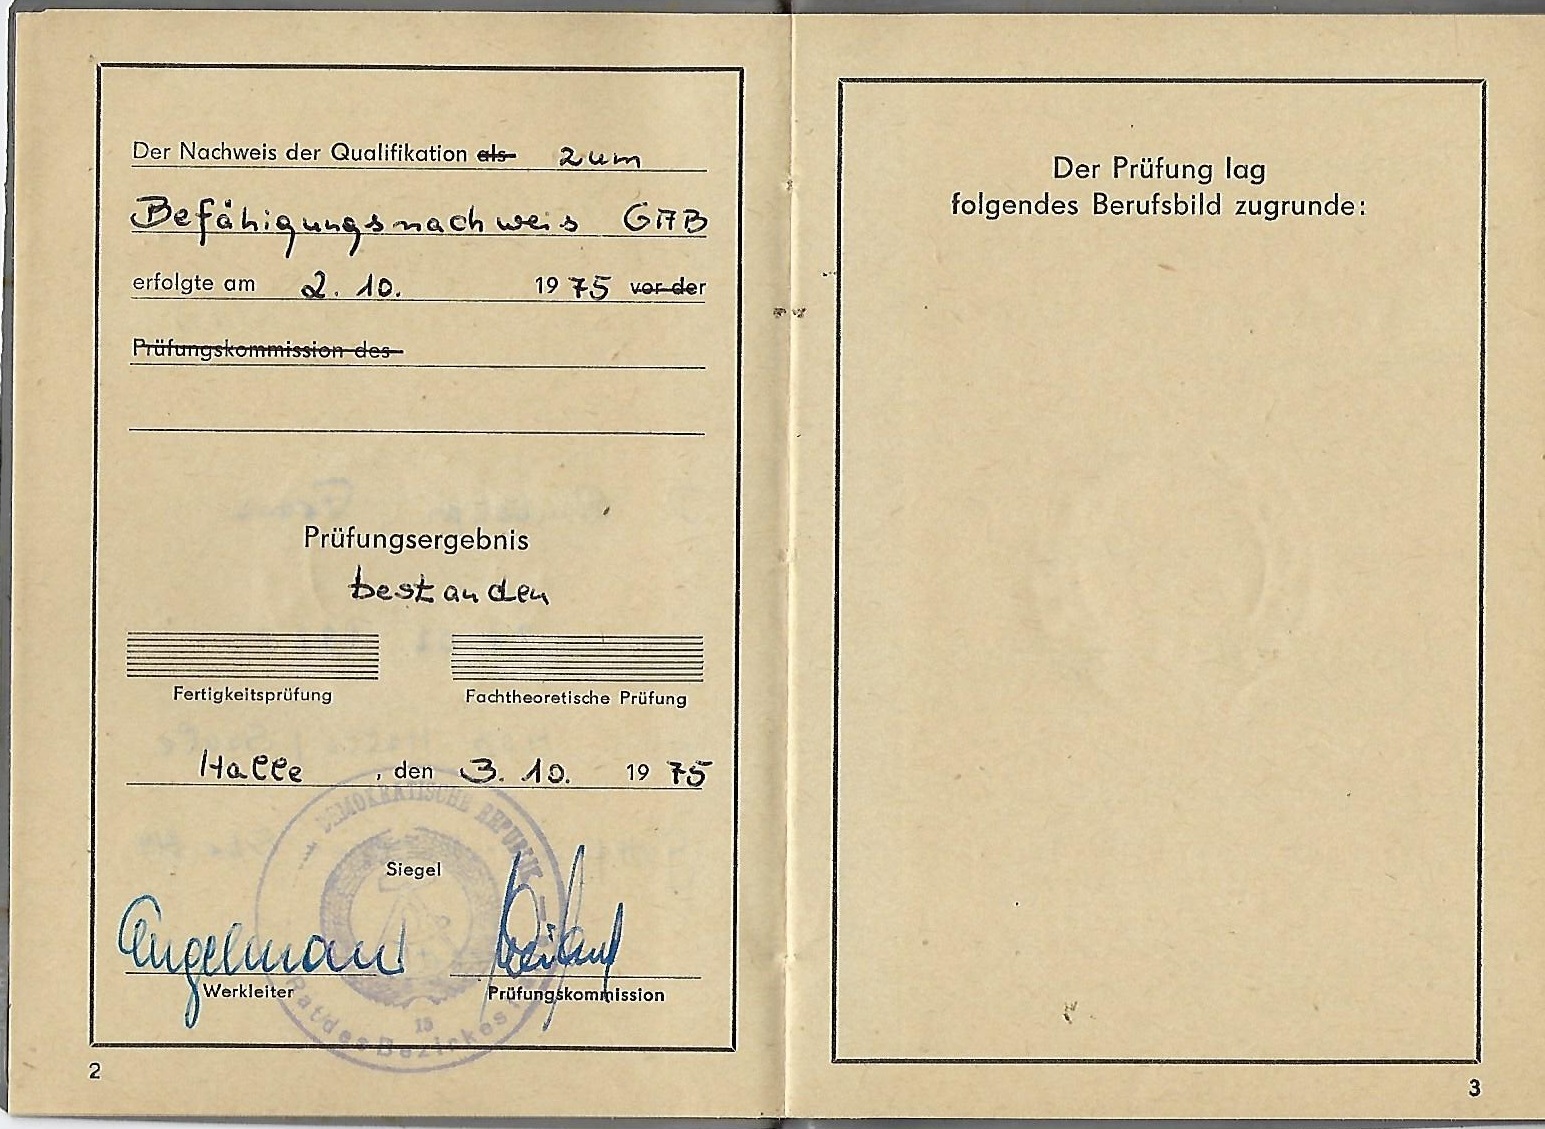 Der Nachweis der Qualifikation als zum
Befähigungsnachweis GAB
erfolgte am 2. 10. 19 75 vor der
Prüfungskommission des
Prüfungsergebnis
bestanden
Fertigkeitsprüfung Fachtheoretische Prüfung
Halle , den 3. 10. 19 75
DEMOKRATISCHE REPUBLIK
Siegel
Engelmann
Werkleiter Prüfungskommission
13
Rat des Bezirkes
2
Der Prüfung lag
folgendes Berufsbild zugrunde:
3